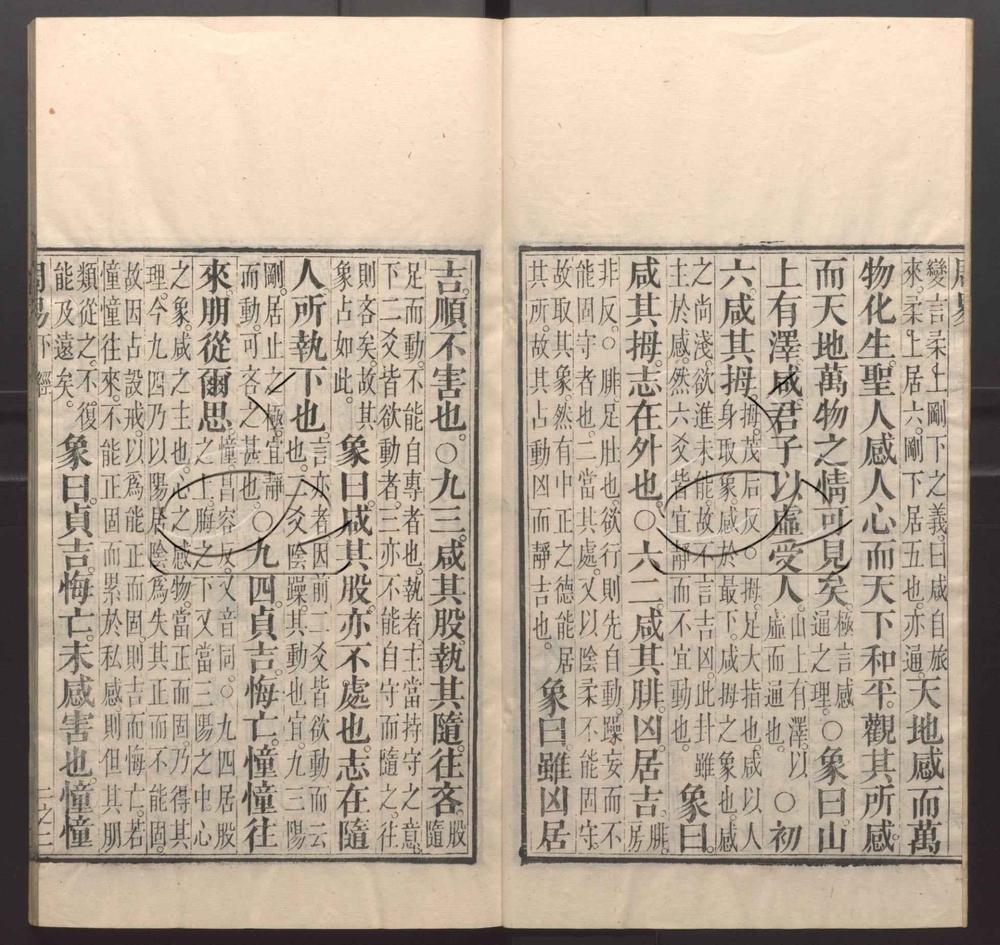 周易
變言柔上剛下之義曰咸自旅
來柔上居六剛下居五也亦通天地感而萬
物化生聖人感人心而天下和平觀其所感
而天地萬物之情可見矣極言感
通之理○象曰山
上有澤咸君子以虛受人山上有澤以
虛而通也○初
六咸其拇拇茂后反○拇足大指也咸以人
身取象感於最下咸拇之象也感
之尚淺欲進未能故不言吉凶此卦雖
主於感然六爻皆宜靜而不宜動也象曰
咸其拇志在外也○六二咸其腓凶居吉腓房
非反○腓足肚也欲行則先自動躁妄而不
能固守者也二當其處又以陰柔不能固守
故取其象然有中正之德能居
其所故其占動凶而靜吉也象曰雖凶居
吉順不害也○九三咸其股執其隨往吝股隨
足而動不能自專者也執者主當持守之意
下二爻皆欲動者三亦不能自守而隨之往
則吝矣故其
象占如此象曰咸其股亦不處也志在隨
人所執下也言亦者因前二爻皆欲動而云
也二爻陰躁其動也宜九三陽
剛居止之極宜靜
而動可吝之甚也○九四貞吉悔亡憧憧往
來朋從爾思憧昌容反又音同○九四居股
之上脢之下又當三陽之中心
之象咸之主也心之感物當正而固乃得其
理今九四乃以陽居陰爲失其正而不能固
故因占設戒以爲能正而固則吉而悔亡若
憧憧往來不能正固而累於私感則但其朋
類從之不復
能及遠矣象曰貞吉悔亡未感害也憧憧
周易下經
二之二